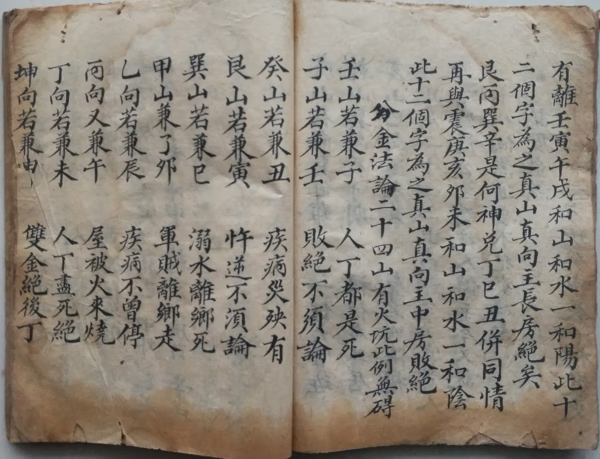 有離壬寅午戌和山和水一和陽此十
二個字為之真山真向主長房絕矣
艮丙巽辛是何神兌丁巳丑併同情
再與震庚亥夘未和山和水一和陰
此十二個字為之真山真向主中房敗絕
分金法論二十四山有火坑此例無碍
壬山若兼子 人丁都是死
子山若兼壬 敗絕不須論
癸山若兼丑 疾病災殃有
艮山若兼寅 忤逆不須論
巽山若兼巳 溺水離鄉死
甲山兼了夘 軍賊離鄉走
乙向若兼辰 疾病不曾停
丙向又兼午 屋被火來燒
丁向若兼未 人丁盡死絕
坤向若兼申 雙金絕後丁